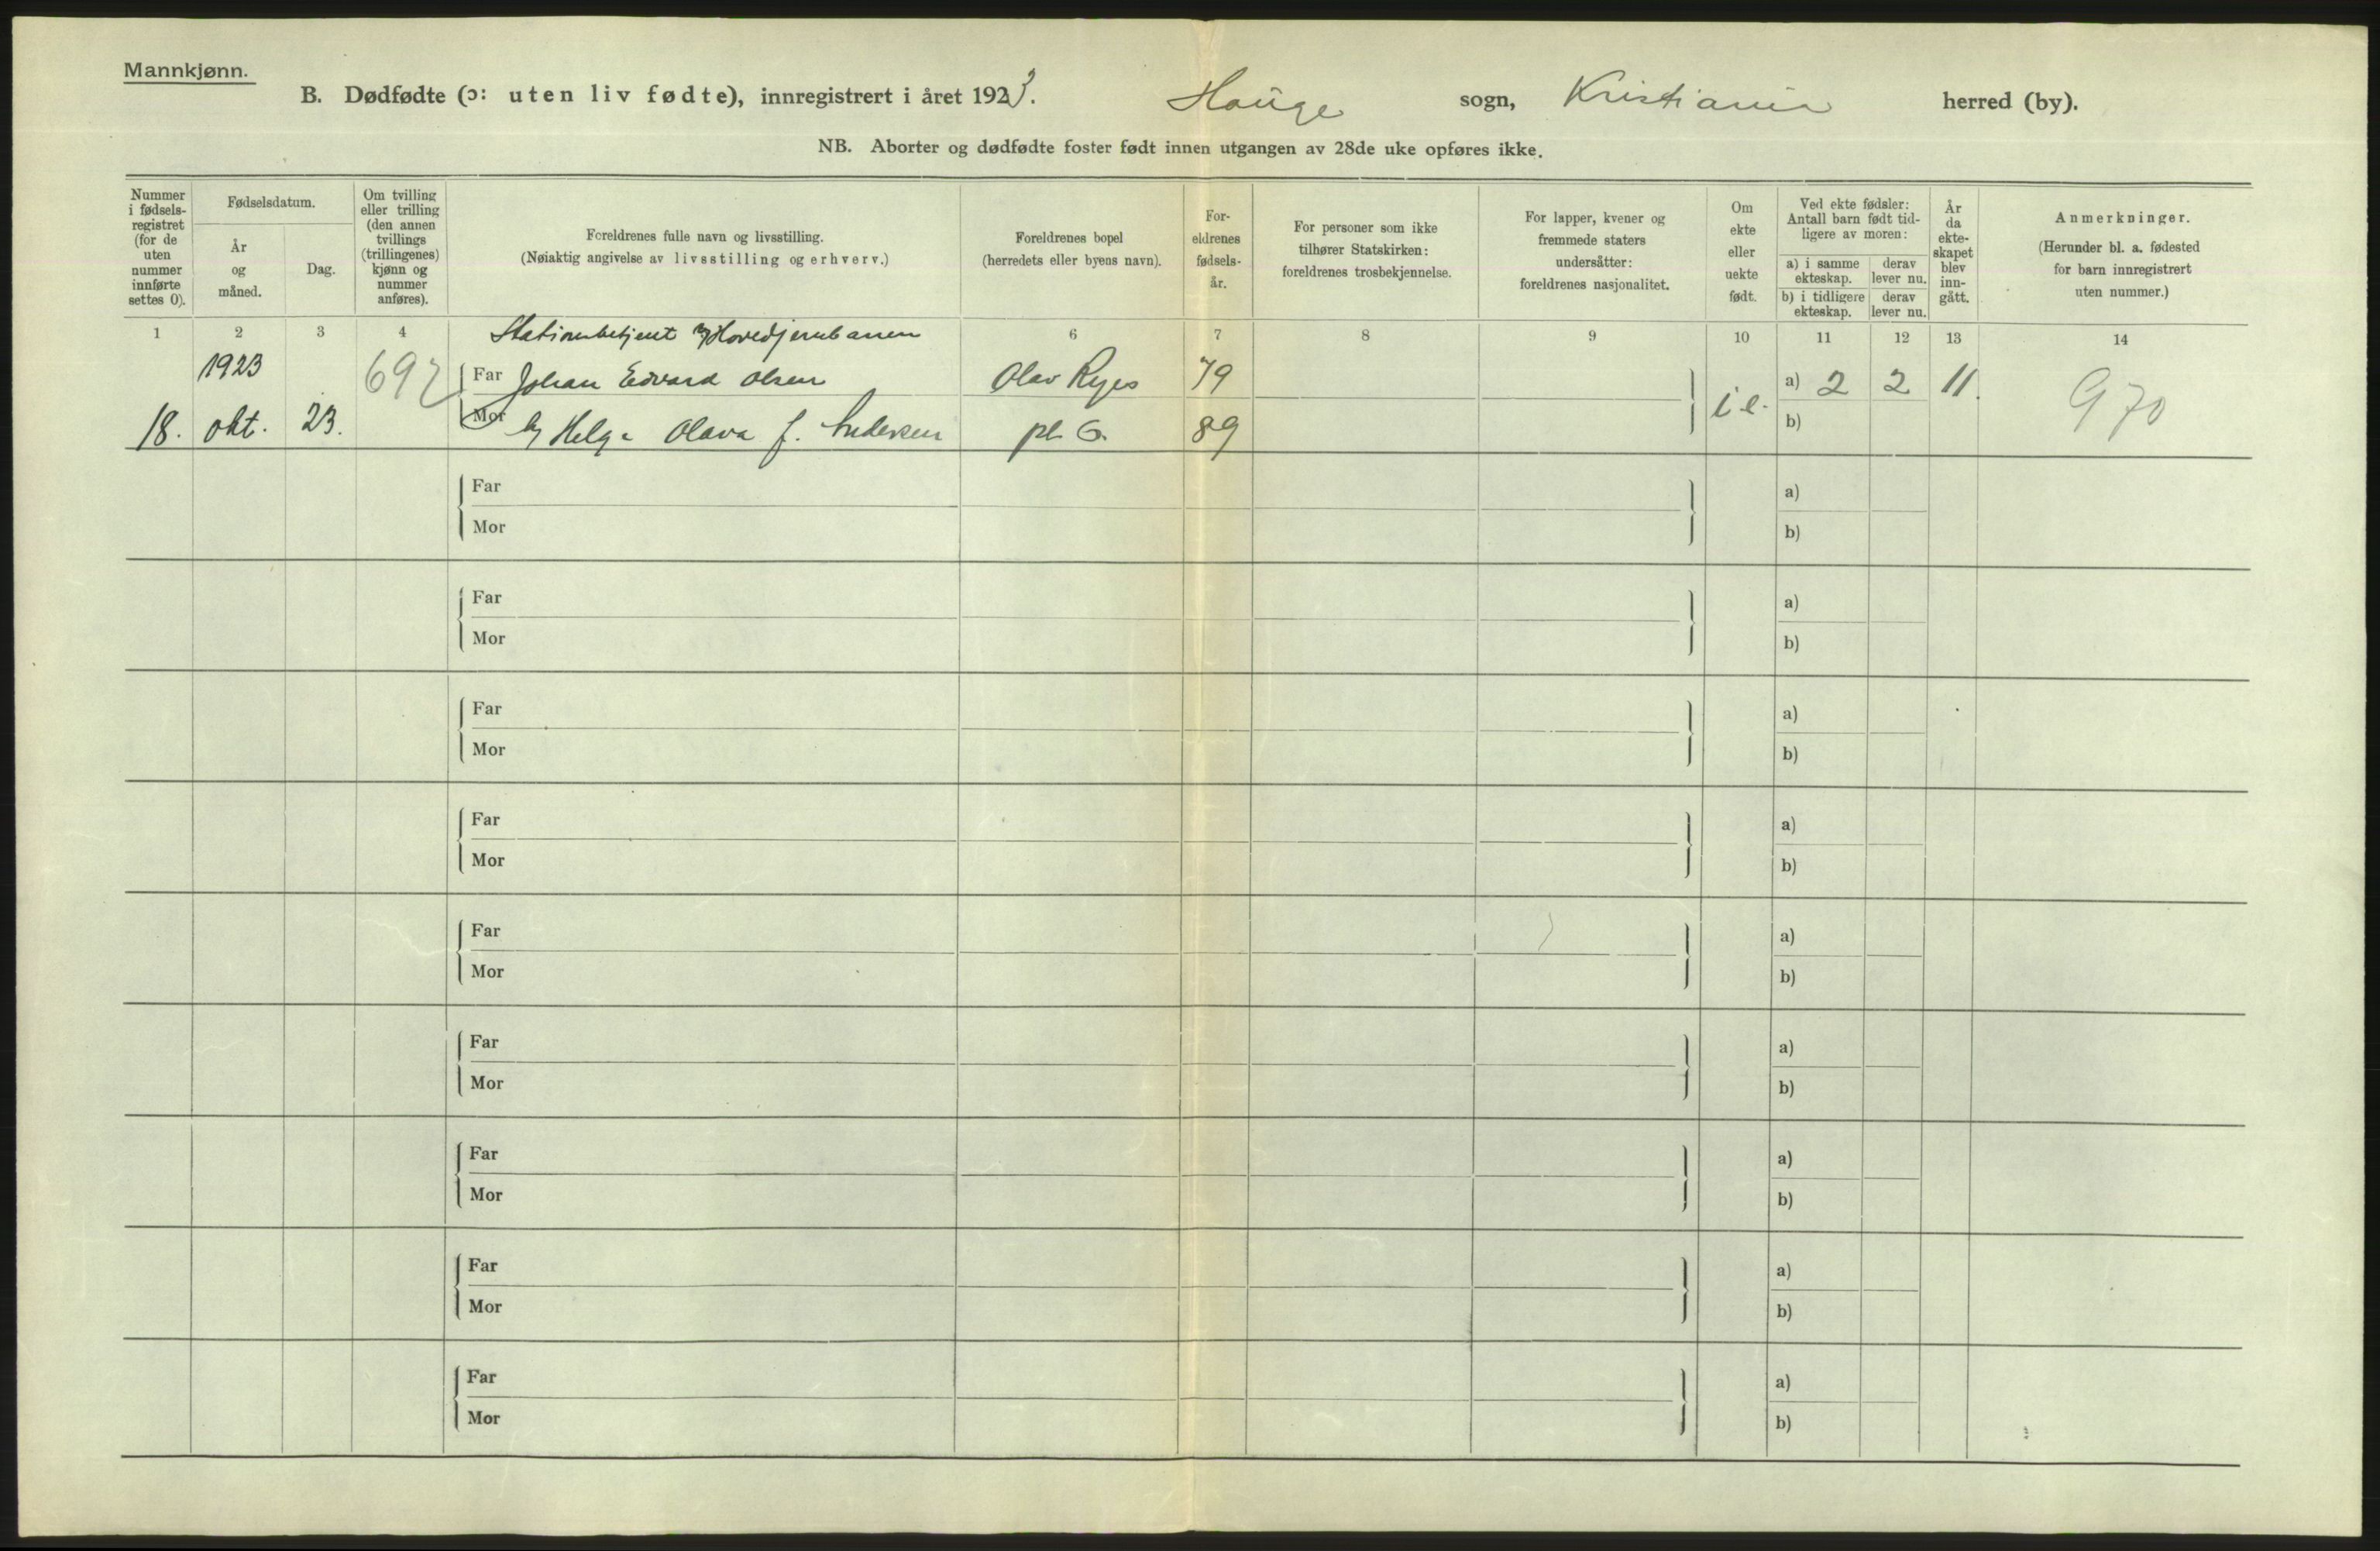 Mannkjønn.
B. Dødfødte (ɔ: uten liv fødte), innregistrert i året 1923. Hauge sogn, Kristiania herred (by).
NB. Aborter og dødfødte foster født innen utgangen av 28de uke opføres ikke.
Nummer i fødselsregistret (for de uten nummer innførte settes 0).
Fødselsdatum.
År og måned.
Dag.
Om tvilling eller trilling (den annen tvillings (trillingenes) kjønn og nummer anføres).
Foreldrenes fulle navn og livsstilling.
(Nøiaktig angivelse av livsstilling og erhverv.)
Foreldrenes bopel
(herredets eller byens navn).
Foreldrenes fødselsår.
For personer som ikke tilhører Statskirken: foreldrenes trosbekjennelse.
For lapper, kvener og fremmede staters undersåtter: foreldrenes nasjonalitet.
Om ekte eller uekte født.
Ved ekte fødsler: Antall barn født tidligere av moren:
a) i samme ekteskap. derav lever nu.
b) i tidligere ekteskap. derav lever nu.
År da ekteskapet blev inngått.
Anmerkninger.
(Herunder bl. a. fødested for barn innregistrert uten nummer.)
1 2 3 4 6 7 8 9 10 11 12 13 14
Stationsbetjent v/Hovedjernbanen
1923 697 Far Johan Edvard Olsen Olav Ryes 79 i e. a) 2 2 11. 970
18. okt. 23. Mor Helga Olava f. Andersen pl. 6. 89 b)
Far a)
Mor b)
Far a)
Mor b)
Far a)
Mor b)
Far a)
Mor b)
Far a)
Mor b)
Far a)
Mor b)
Far a)
Mor b)
Far a)
Mor b)
Far a)
Mor b)